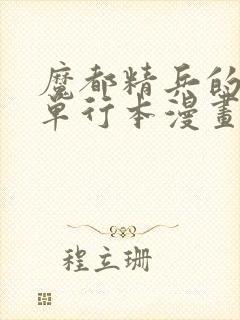 魔都精兵的
单行本漫畫
程立珊